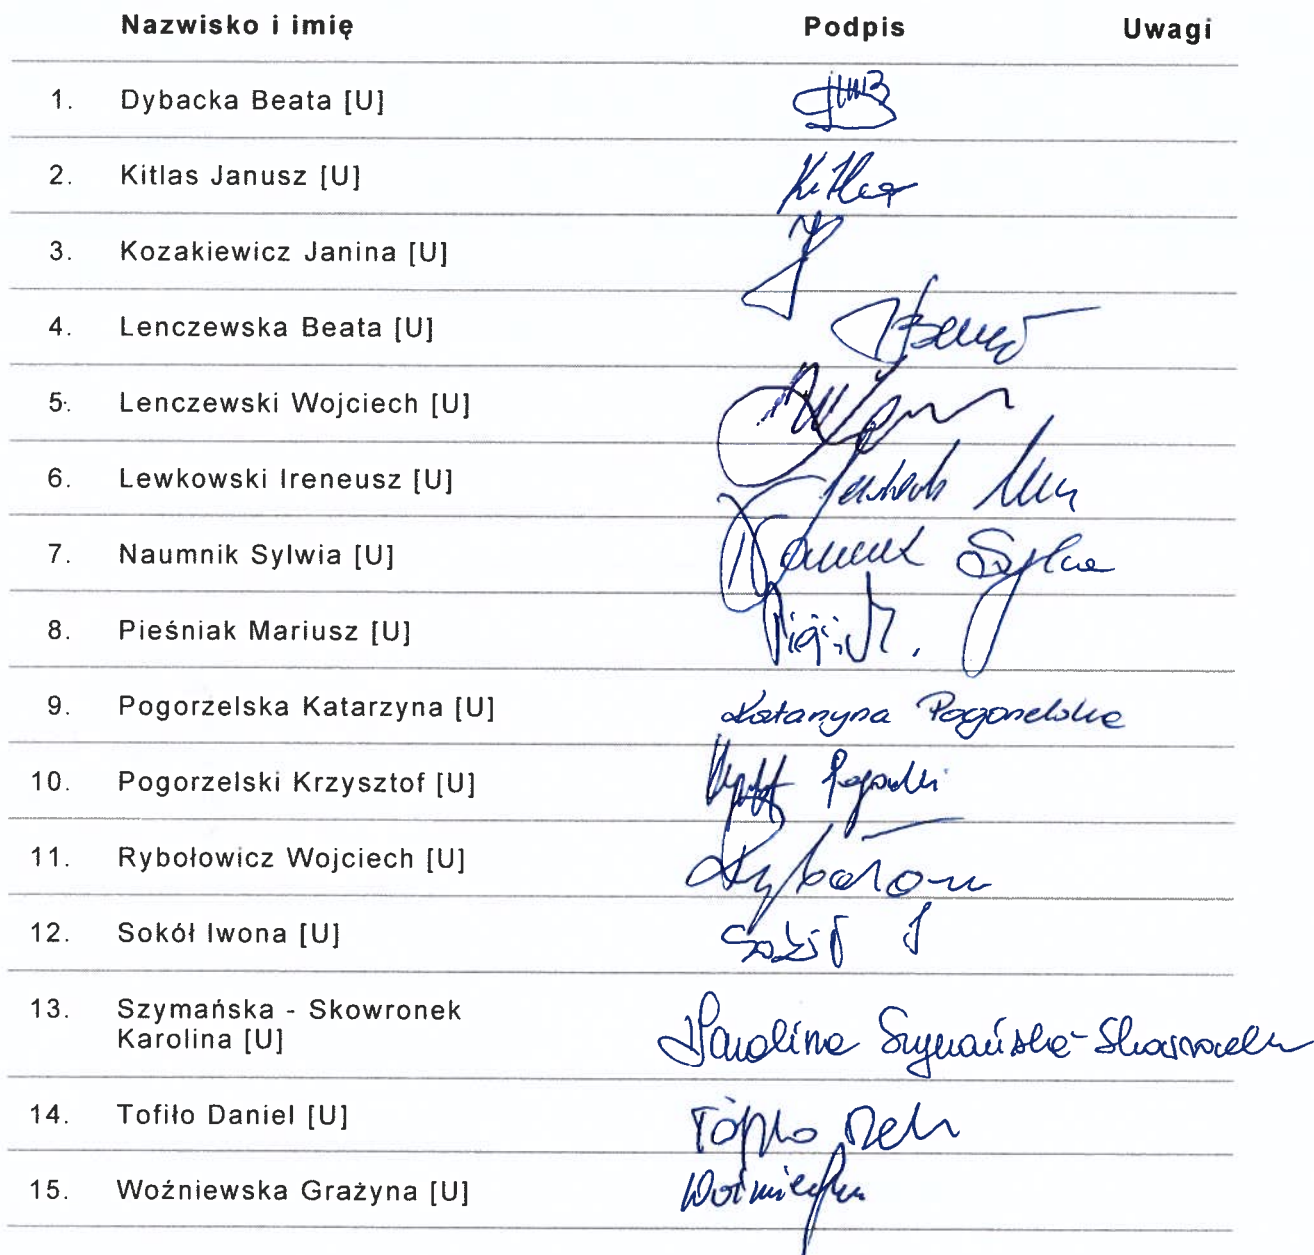 Nazwisko i imię Podpis Uwagi
1. Dybacka Beata [U]
2. Kitlas Janusz [U] Kitlas
3. Kozakiewicz Janina [U]
4. Lenczewska Beata [U]
5. Lenczewski Wojciech [U]
6. Lewkowski Ireneusz [U]
7. Naumnik Sylwia [U] Naumnik Sylwia
8. Pieśniak Mariusz [U]
9. Pogorzelska Katarzyna [U] Katarzyna Pogorzelska
10. Pogorzelski Krzysztof [U]
11. Rybołowicz Wojciech [U]
12. Sokół Iwona [U] Sokół I
13. Szymańska - Skowronek
Karolina [U] Karolina Szymańska-Skowronek
14. Tofiło Daniel [U] Tofiło
15. Woźniewska Grażyna [U]